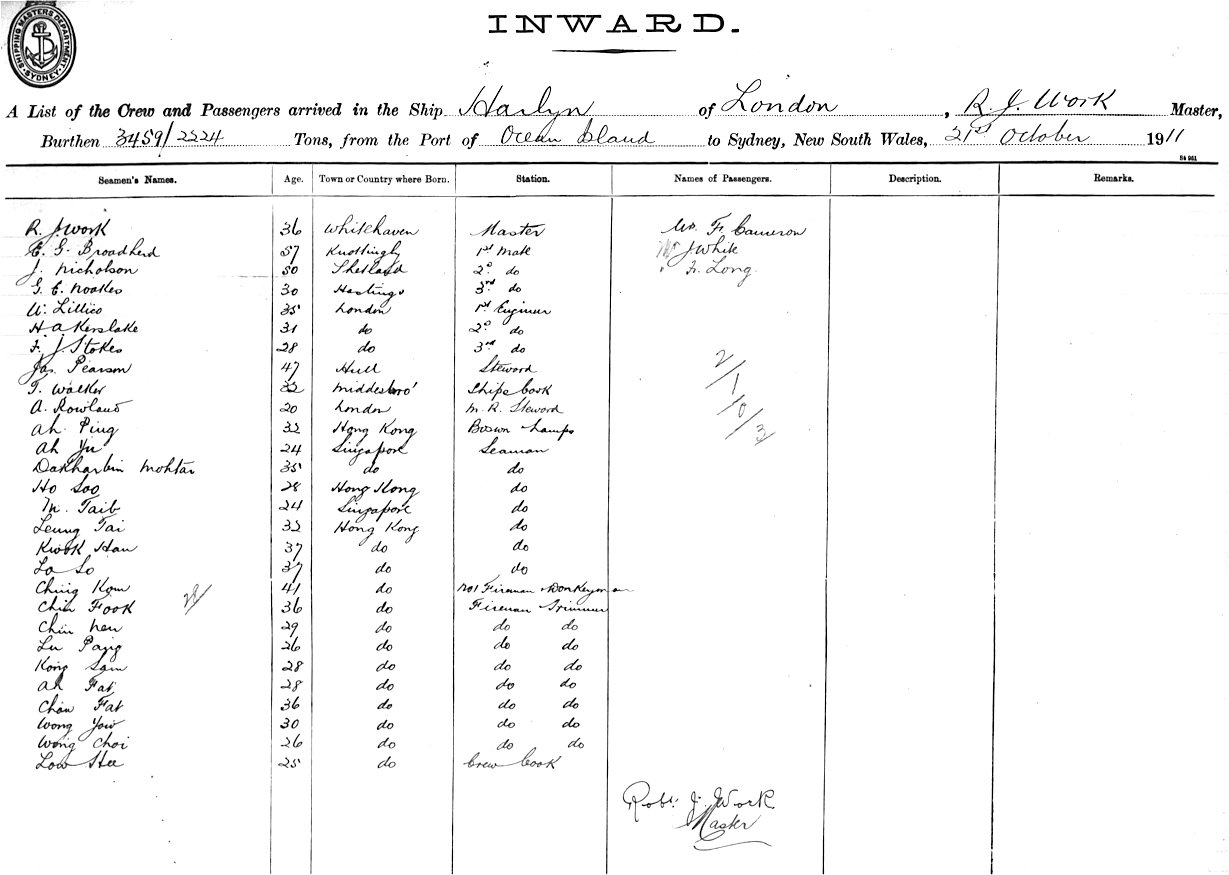 SHIPPING MASTERS DEPARTMENT
SYDNEY
INWARD.
A List of the Crew and Passengers arrived in the Ship Harlyn of London, R. J. Work Master,
Burthen 3459/2224 Tons, from the Port of Ocean Island to Sydney, New South Wales, 21st October 1911
Seamen's Names. Age. Town or Country where Born. Station. Names of Passengers. Description. Remarks.
R. J. Work 36 Whitehaven Master Mr. Fr. Cameron
E. G. Broadherd 57 Knottingly 1st Mate J. White
J. Nicholson 50 Shetland 2d do Fr. Long
G. E. Noakes 30 Hastings 3rd do
W. Lillico 35 London 1st Engineer
H A Kerslake 31 do 2d do
F. J. Stokes 28 do 3rd do
Jas. Pearson 47 Hull Steword
T. Walker 32 Middesbro' Ships Cook
A. Rowland 20 London M. R. Steword
Ah Ping 32 Hong Kong Bosun Lamps
Ah Yu 24 Singapore Seaman
Dakharbin Mohtar 35 do do
Ho Soo 28 Hong Kong do
M. Taib 24 Singapore do
Leung Tai 32 Hong Kong do
Kwok Hau 37 do do
Lo So 37 do do
Ching Kom 41 do No1 Fireman Donkeyman
Chin Fook 36 do Fireman Trimmer
28
Chin Neu 29 do do do
Lu Pang 26 do do do
Kong Sam 28 do do do
Ah Fat 28 do do do
Chan Fat 36 do do do
Wong Yow 30 do do do
Wong Choi 26 do do do
Low Hee 25 do Crew Cook
2/1/0/3
Robt. J. Work
Master